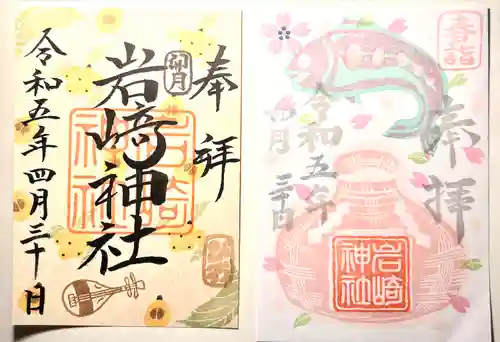 奉拝
卯月
岩崎神社
岩崎神社
令和五年四月三十日
春詣
奉拝
令和五年
四月三十日
岩崎神社